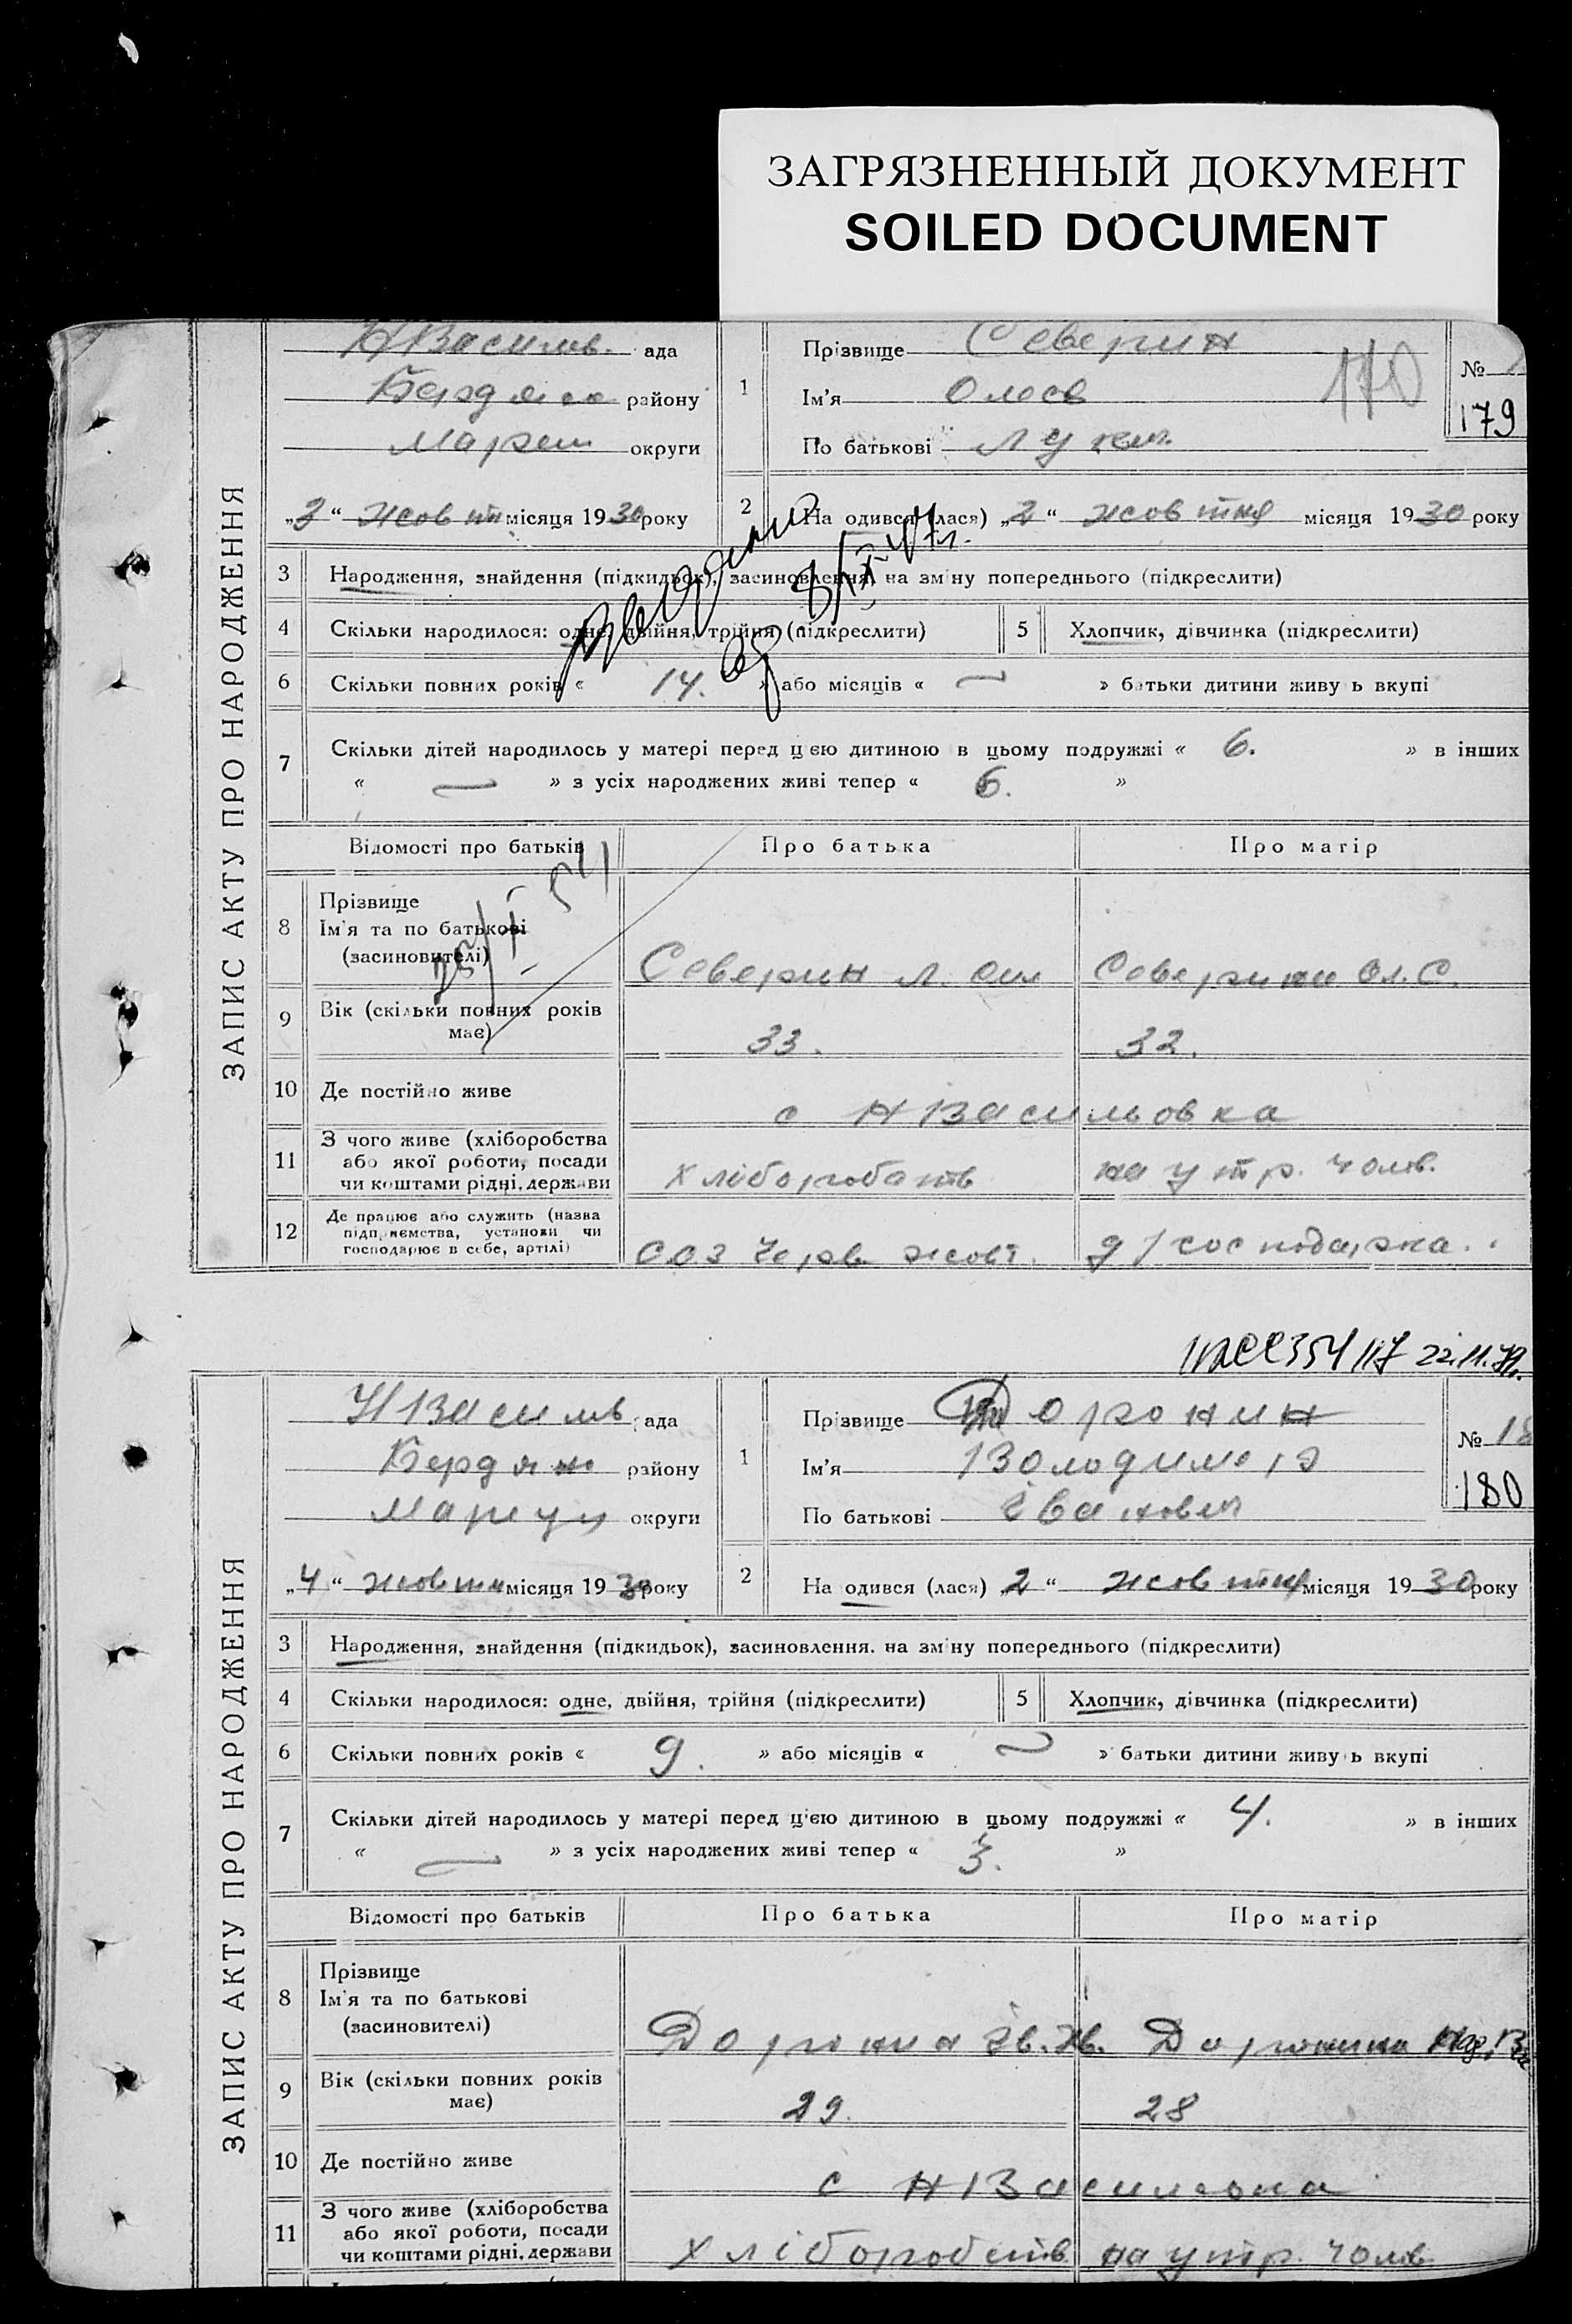 ЗАГРЯЗНЕННЫЙ ДОКУМЕНТ
SOILED DOCUMENT
ЗАПИС АКТУ ПРО НАРОДЖЕННЯ
НВасильв. ада
Бердянс району
округи
„3“ жовтн місяця 1930 року
1
Прізвище Северин
Ім'я Олесь
По батькові Лукич
170
№
179
2
На одився (лася) „2“ жовтня місяця 1930 року
3 Народження, знайдення (підкидьок), засиновлення, на зміну попереднього (підкреслити)
4 Скільки народилося: одне, двійня, трійня (підкреслити)
5 Хлопчик, дівчинка (підкреслити)
6 Скільки повних років « 14. » або місяців « — » батьки дитини живу ь вкупі
7 Скільки дітей народилось у матері перед цією дитиною в цьому подружжі « 6. » в інших
« — » з усіх народжених живі тепер « 6. »
Відомості про батьків Про батька Про матір
8 Прізвище
Ім'я та по батькові
(засиновителі)
Северин Л. Северина Ол. С.
9 Вік (скільки повних років
має)
33. 32.
10 Де постійно живе
с НВасильовка
11 З чого живе (хліборобства
або якої роботи, посади
чи коштами рідні, держави
Хліборобств на утр. чолов.
12 Де працює або служить (назва
підприємства, установи чи
господарює в себе, артілі)
СОЗ Черв. жовт. д/господарка
22.11.79.
ЗАПИС АКТУ ПРО НАРОДЖЕННЯ
НВасильв ада
Бердян району
Маріуп округи
„4“ жовтн місяця 1930 року
1
Прізвище Доронин
Ім'я Володимир
По батькові Іванович
№ 18
180
2
На одився (лася) „2“ жовтня місяця 1930 року
3 Народження, знайдення (підкидьок), засиновлення, на зміну попереднього (підкреслити)
4 Скільки народилося: одне, двійня, трійня (підкреслити)
5 Хлопчик, дівчинка (підкреслити)
6 Скільки повних років « 9. » або місяців « — » батьки дитини живу ь вкупі
7 Скільки дітей народилось у матері перед цією дитиною в цьому подружжі « 4. » в інших
« — » з усіх народжених живі тепер « 3. »
Відомості про батьків Про батька Про матір
8 Прізвище
Ім'я та по батькові
(засиновителі)
Доронин Ів. Ів. Доронина Над. Ва
9 Вік (скільки повних років
має)
29. 28
10 Де постійно живе
с НВасильовка
11 З чого живе (хліборобства
або якої роботи, посади
чи коштами рідні, держави
Хліборобств на утр. чолов.